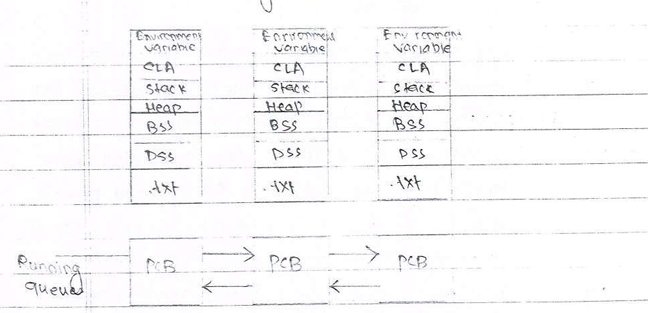 Environment
variable
CLA
Stack
Heap
BSS
DSS
.txt
Environment
variable
CLA
Stack
Heap
BSS
DSS
.txt
Environment
variable
CLA
Stack
Heap
BSS
DSS
.txt
Running
queue
PCB
PCB
PCB